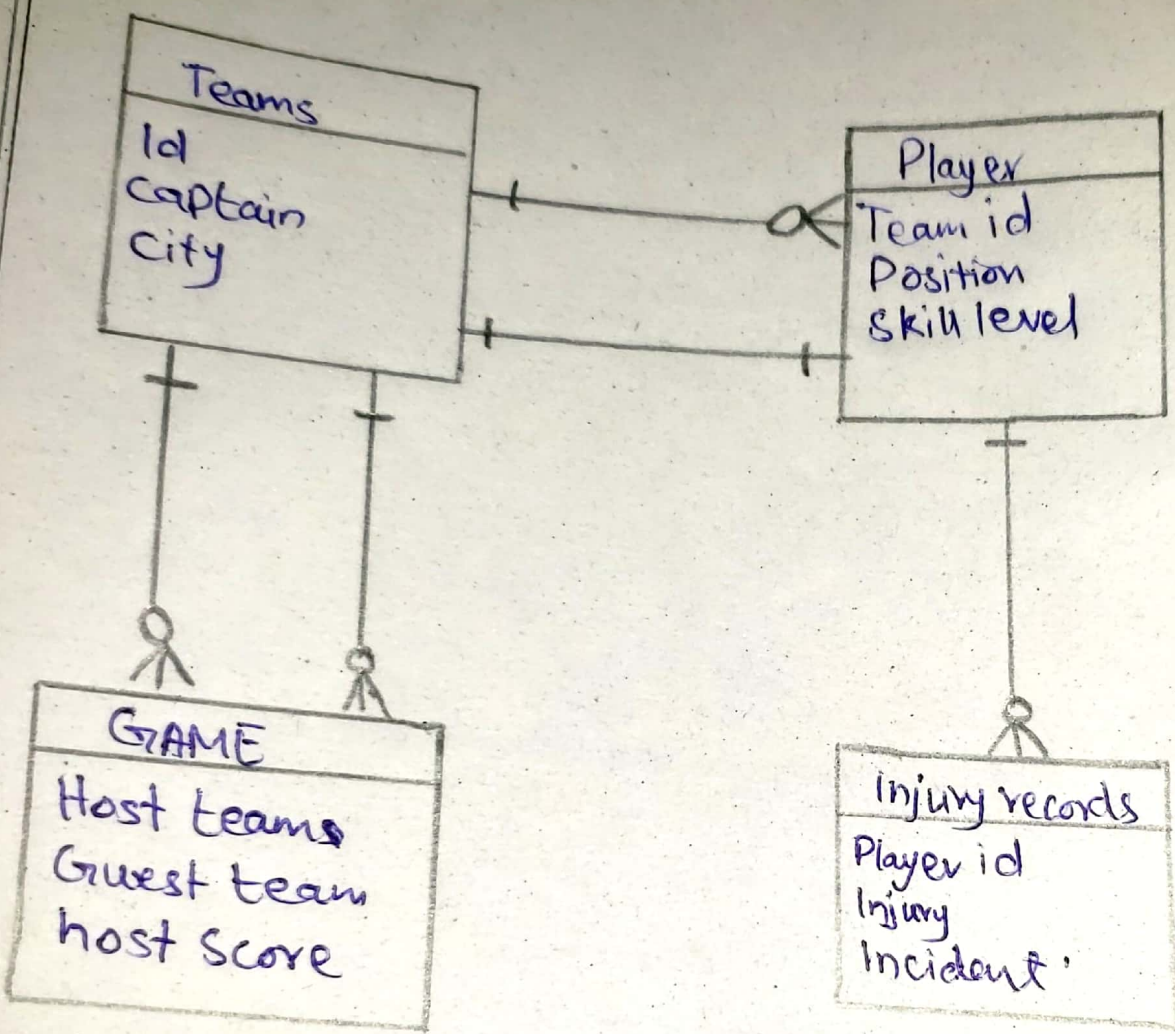 Teams
Id
Captain
City
Player
Team id
Position
Skill level
GAME
Host teams
Guest team
host score
Injury records
Player id
Injury
Incident